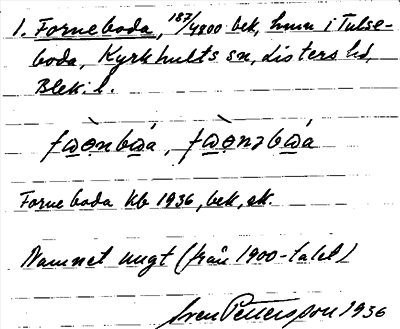 1. Forneboda, 187/4800 bek, hmn i Tulse-
boda, Kyrkhults sn, Listers hd,
Blek. l.
fɷ̀ɵ̣nbɷá, fɷ̀ɵ̣nəbɷá
Forneboda Kb 1936, bek, ek.
Namnet ungt (från 1900-talet)
Sven Pettersson 1936